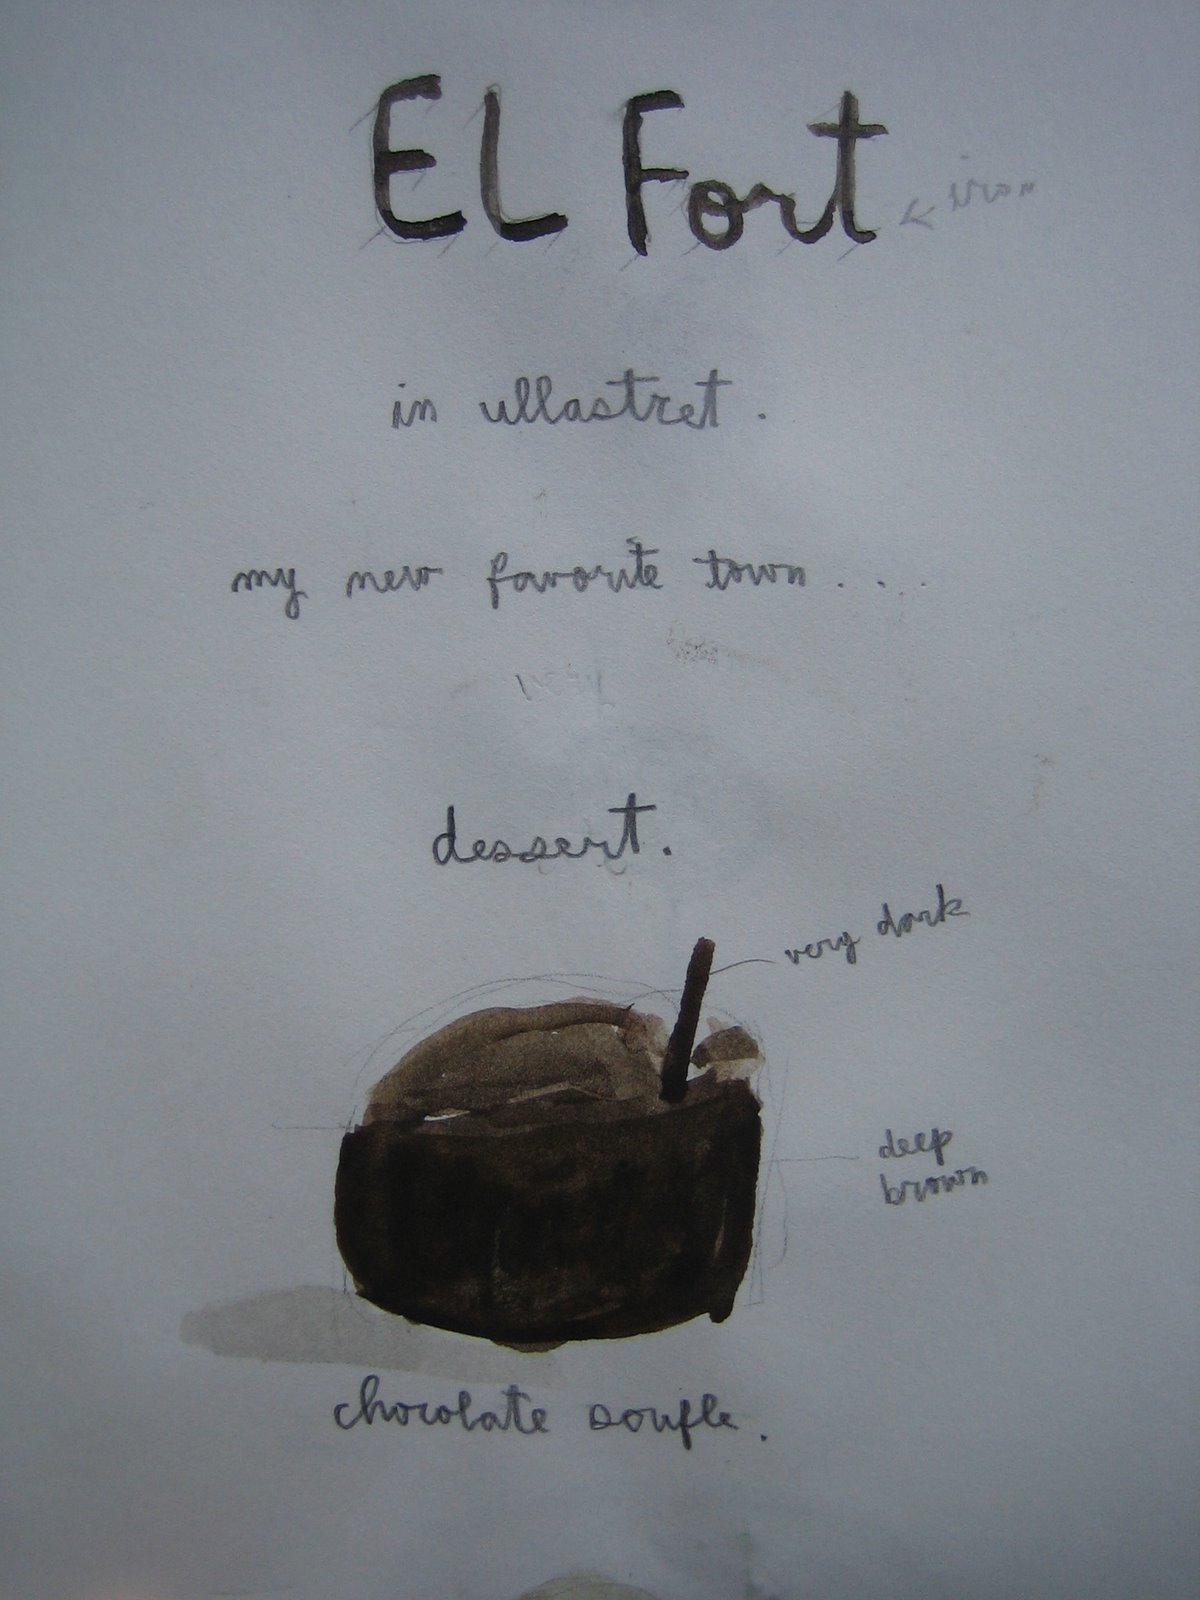 El Fort
iron
in ullastret.
my new favorite town....
dessert.
very dark
deep
brown
chocolate soufle.